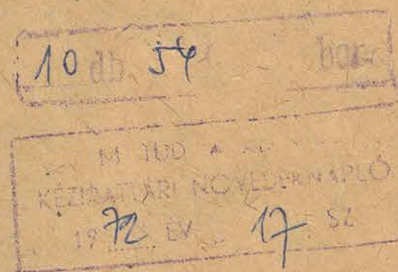 10 db. 54 bor.
M. TUD. A
KÉZIRATTÁRI NÖVEDÉKNAPLÓ
1972 ÉV 17. SZ